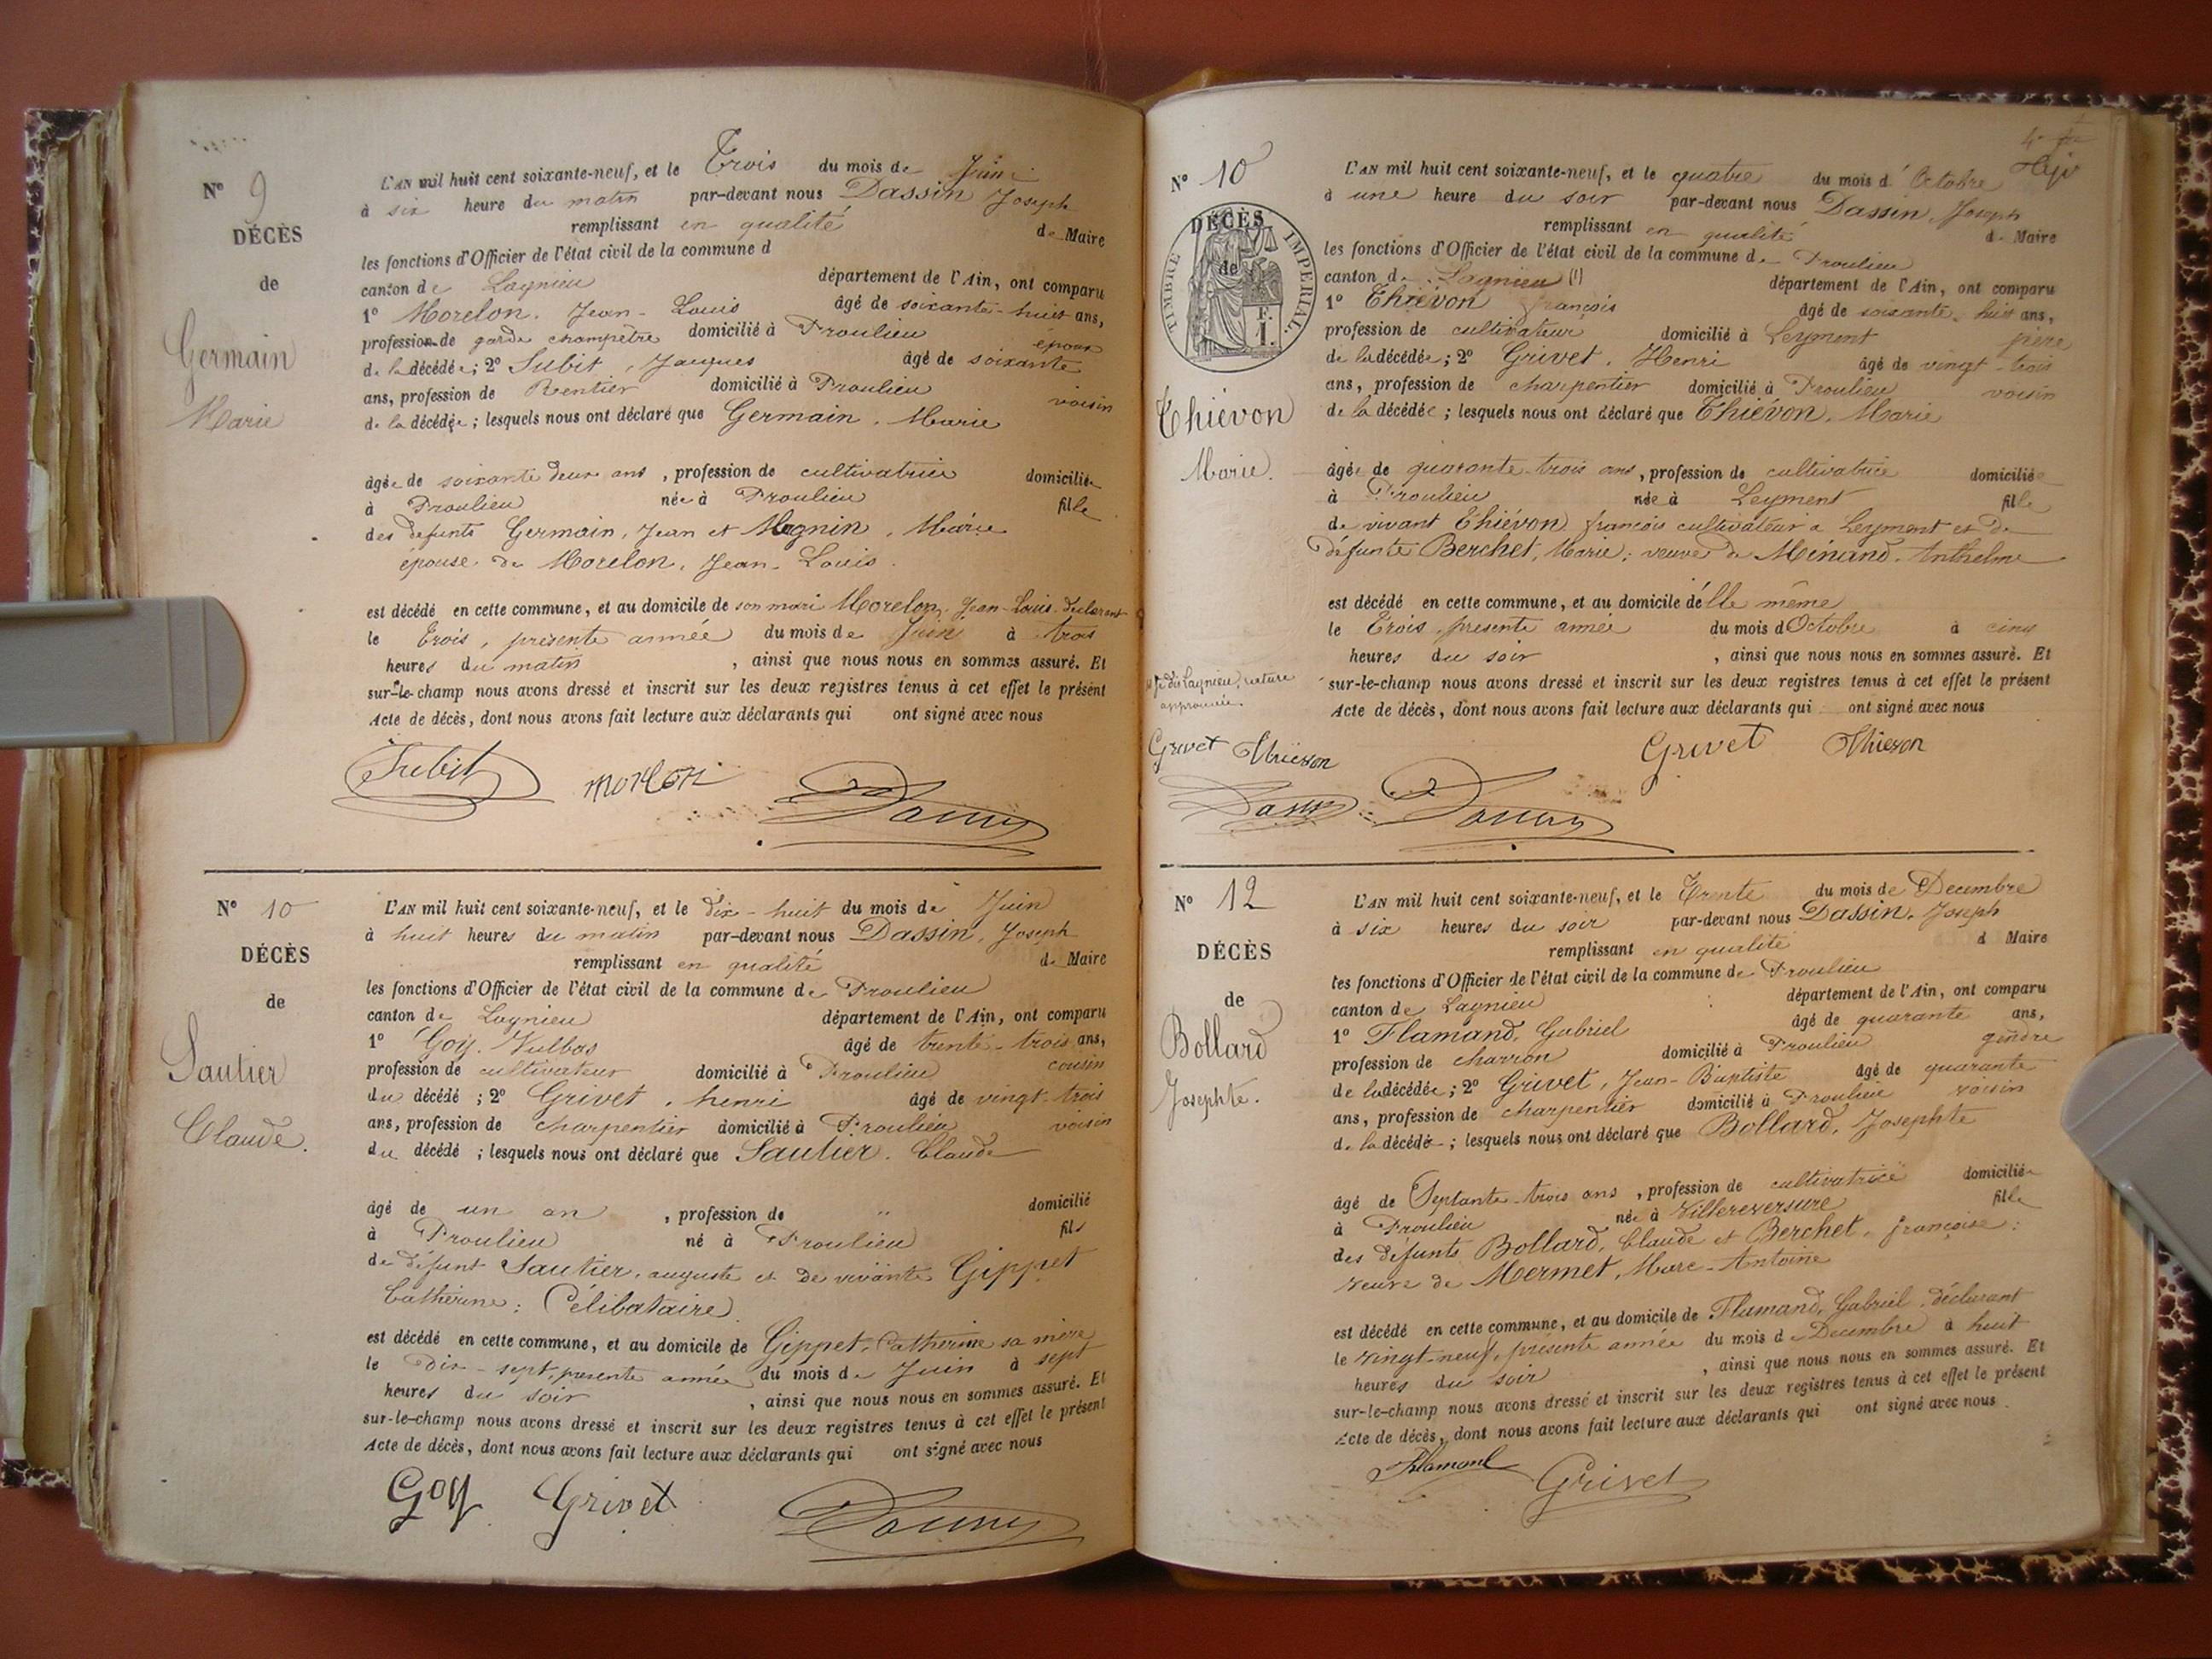 N° 9
DÉCÈS
de
Germain
Marie
L'AN mil huit cent soixante-neuf, et le Trois du mois de Juin
à six heure du matin par-devant nous Dassin Joseph
remplissant en qualité de Maire
les fonctions d'Officier de l'état civil de la commune d
canton de Lagnieu département de l'Ain, ont comparu
1° Morelon, Jean-Louis âgé de soixante-huit ans,
profession de garde champêtre domicilié à Proulieu époux
de la décédée; 2° Subit, Jacques âgé de soixante
ans, profession de Rentier domicilié à Proulieu voisin
de la décédée; lesquels nous ont déclaré que Germain, Marie
âgée de soixante deux ans, profession de cultivatrice domiciliée
à Proulieu née à Proulieu fille
des défunts Germain, Jean et Magnin, Marie
épouse de Morelon, Jean-Louis.
est décédé en cette commune, et au domicile de son mari Morelon, Jean-Louis déclarant
le Trois, présente année du mois de Juin à trois
heures du matin, ainsi que nous nous en sommes assuré. Et
sur-le-champ nous avons dressé et inscrit sur les deux registres tenus à cet effet le présent
Acte de décès, dont nous avons fait lecture aux déclarants qui ont signé avec nous
Subit morlon Dassin
N° 10
DÉCÈS
de
Sautier
Claude.
L'AN mil huit cent soixante-neuf, et le dix-huit du mois de Juin
à huit heures du matin par-devant nous Dassin, Joseph
remplissant en qualité de Maire
les fonctions d'Officier de l'état civil de la commune de Proulieu
canton de Lagnieu département de l'Ain, ont comparu
1° Goy, Vulbas âgé de trente-trois ans,
profession de cultivateur domicilié à Proulieu cousin
du décédé; 2° Grivet, henri âgé de vingt-trois
ans, profession de charpentier domicilié à Proulieu voisin
du décédé; lesquels nous ont déclaré que Sautier, Claude
âgé de un an, profession de " domicilié
à Proulieu né à Proulieu fils
de défunt Sautier, auguste et de vivante Gippet
Catherine: Célibataire
est décédé en cette commune, et au domicile de Gippet, Catherine sa mère
le Dix-sept, présente année du mois de Juin à sept
heures du soir, ainsi que nous nous en sommes assuré. Et
sur-le-champ nous avons dressé et inscrit sur les deux registres tenus à cet effet le présent
Acte de décès, dont nous avons fait lecture aux déclarants qui ont signé avec nous
Goy Grivet Dassin
N° 10
DÉCÈS
de
TIMBRE IMPERIAL.
F.
1.
Thiévon
Marie.
L'AN mil huit cent soixante-neuf, et le quatre du mois d'Octobre
à une heure du soir par-devant nous Dassin, Joseph
remplissant en qualité de Maire
les fonctions d'Officier de l'état civil de la commune de Proulieu
canton de Lagnieu (1) département de l'Ain, ont comparu
1° Thiévon françois âgé de soixante-huit ans,
profession de cultivateur domicilié à Leyment père
de la décédée; 2° Grivet, Henri âgé de vingt-trois
ans, profession de charpentier domicilié à Proulieu voisin
de la décédée; lesquels nous ont déclaré que Thiévon, Marie
âgée de quarante-trois ans, profession de cultivatrice domiciliée
à Proulieu née à Leyment fille
de vivant Thiévon françois cultivateur à Leyment et de
défunte Berchet, Marie; veuve de Ménand, Anthelme
est décédé en cette commune, et au domicile d'elle même
le Trois, présente année du mois d'Octobre à cinq
heures du soir, ainsi que nous nous en sommes assuré. Et
sur-le-champ nous avons dressé et inscrit sur les deux registres tenus à cet effet le présent
Acte de décès, dont nous avons fait lecture aux déclarants qui ont signé avec nous
de Lagnieu, rature
approuvée.
Grivet Thievon Grivet Thievon
Dassin Dassin
N° 12
DÉCÈS
de
Bollard
Josephte.
L'AN mil huit cent soixante-neuf, et le Trente du mois de Decembre
à six heures du soir par-devant nous Dassin, Joseph
remplissant en qualité d Maire
les fonctions d'Officier de l'état civil de la commune de Proulieu
canton de Lagnieu département de l'Ain, ont comparu
1° Flamand, Gabriel âgé de quarante ans,
profession de charron domicilié à Proulieu gendre
de la décédée; 2° Grivet, Jean-Baptiste âgé de quarante
ans, profession de charpentier domicilié à Proulieu voisin
de la décédé; lesquels nous ont déclaré que Bollard, Josephte
âgé de Septante-trois ans, profession de cultivatrice domiciliée
à Proulieu née à Villereversure fille
des défunts Bollard, Claude et Berchet, françoise:
veuve de Mermet, Marc-Antoine
est décédé en cette commune, et au domicile de Flamand, Gabriel, déclarant
le vingt-neuf, présente année du mois de Decembre à huit
heures du soir, ainsi que nous nous en sommes assuré. Et
sur-le-champ nous avons dressé et inscrit sur les deux registres tenus à cet effet le présent
Acte de décès, dont nous avons fait lecture aux déclarants qui ont signé avec nous.
Flamand Grivet